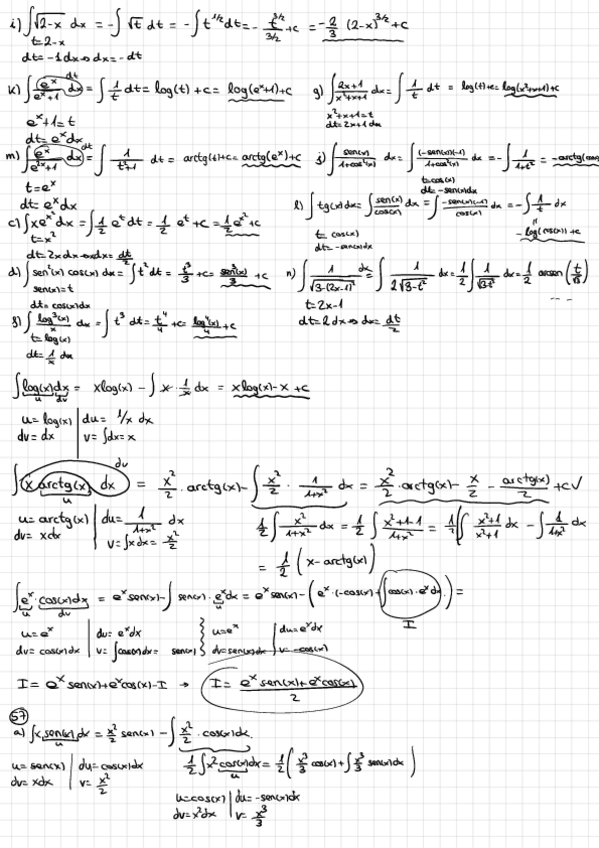 i) ∫√(2-x) dx = -∫√t dt = -∫t^(1/2) dt = - t^(3/2)/(3/2) + c = -2/3 (2-x)^(3/2) + c
t = 2-x
dt = -1dx → dx = -dt
k) ∫ e^x/(e^x+1) dx = ∫ 1/t dt = log(t) + c = log(e^x+1) + c
dt
e^x+1 = t
dt = e^x dx
g) ∫ (2x+1)/(x²+x+1) dx = ∫ 1/t dt = log(t)+c = log(x²+x+1)+c
x²+x+1 = t
dt = 2x+1 dx
m) ∫ e^x/(e^(2x)+1) dx = ∫ 1/(t²+1) dt = arctg(t)+c = arctg(e^x)+c
dt
t = e^x
dt = e^x dx
j) ∫ sen(x)/(1+cos²(x)) dx = ∫ (-sen(x))(-1)/(1+cos²(x)) dx = -∫ 1/(1+t²) = -arctg(cos
t = cos(x)
dt = -sen(x)dx
c) ∫ xe^(x²) dx = ∫ 1/2 e^t dt = 1/2 e^t + c = 1/2 e^(x²) + c
t = x²
dt = 2x dx → xdx = dt/2
l) ∫ tg(x)dx = ∫ sen(x)/cos(x) dx = ∫ -sen(x)(-1)/cos(x) dx = -∫ 1/t dx
t = cos(x)
dt = -sen(x)dx
= -log(cos(x)) + c
d) ∫ sen²(x) cos(x) dx = ∫ t² dt = t³/3 + c = sen³(x)/3 + c
sen(x) = t
dt = cos(x)dx
n) ∫ 1/√(3-(2x-1)²) dx = ∫ 1/(2√(3-t²)) dx = 1/2 ∫ 1/√(3-t²) dx = 1/2 arcsen (t/√3)
t = 2x-1
dt = 2dx → dx = dt/2
f) ∫ log³(x)/x dx = ∫ t³ dt = t⁴/4 + c = log⁴(x)/4 + c
t = log(x)
dt = 1/x dx
∫ log(x)dx = xlog(x) - ∫ x · 1/x dx = xlog(x) - x + c
u dv
u = log(x) | du = 1/x dx
dv = dx | v = ∫dx = x
∫ x arctg(x) dx = x²/2 · arctg(x) - ∫ x²/2 · 1/(1+x²) dx = x²/2 · arctg(x) - x/2 - arctg(x)/2 + c ✓
dv
u
u = arctg(x) | du = 1/(1+x²) dx
dv = xdx | v = ∫x dx = x²/2
1/2 ∫ x²/(1+x²) dx = 1/2 ∫ (x²+1-1)/(1+x²) = 1/2 (∫ (x²+1)/(x²+1) dx - ∫ 1/(1+x²) dx
= 1/2 (x - arctg(x))
∫ e^x · cos(x)dx = e^x sen(x) - ∫ sen(x) · e^x dx = e^x sen(x) - (e^x · (-cos(x)) + ∫ cos(x) · e^x dx) =
u dv
u
I
u = e^x | du = e^x dx
dv = cos(x)dx | v = ∫cos(x)dx = sen(x)
u = e^x | du = e^x dx
dv = sen(x)dx | v = -cos(x)
I = e^x sen(x) + e^x cos(x) - I → I = (e^x sen(x) + e^x cos(x))/2
57
a) ∫ x sen(x) dx = x²/2 sen(x) - ∫ x²/2 · cos(x)dx
u
u = sen(x) | du = cos(x)dx
dv = xdx | v = x²/2
1/2 ∫ x² cos(x)dx = 1/2 (x³/3 cos(x) + ∫ x³/3 sen(x)dx )
u
u = cos(x) | du = -sen(x)dx
dv = x²dx | v = x³/3